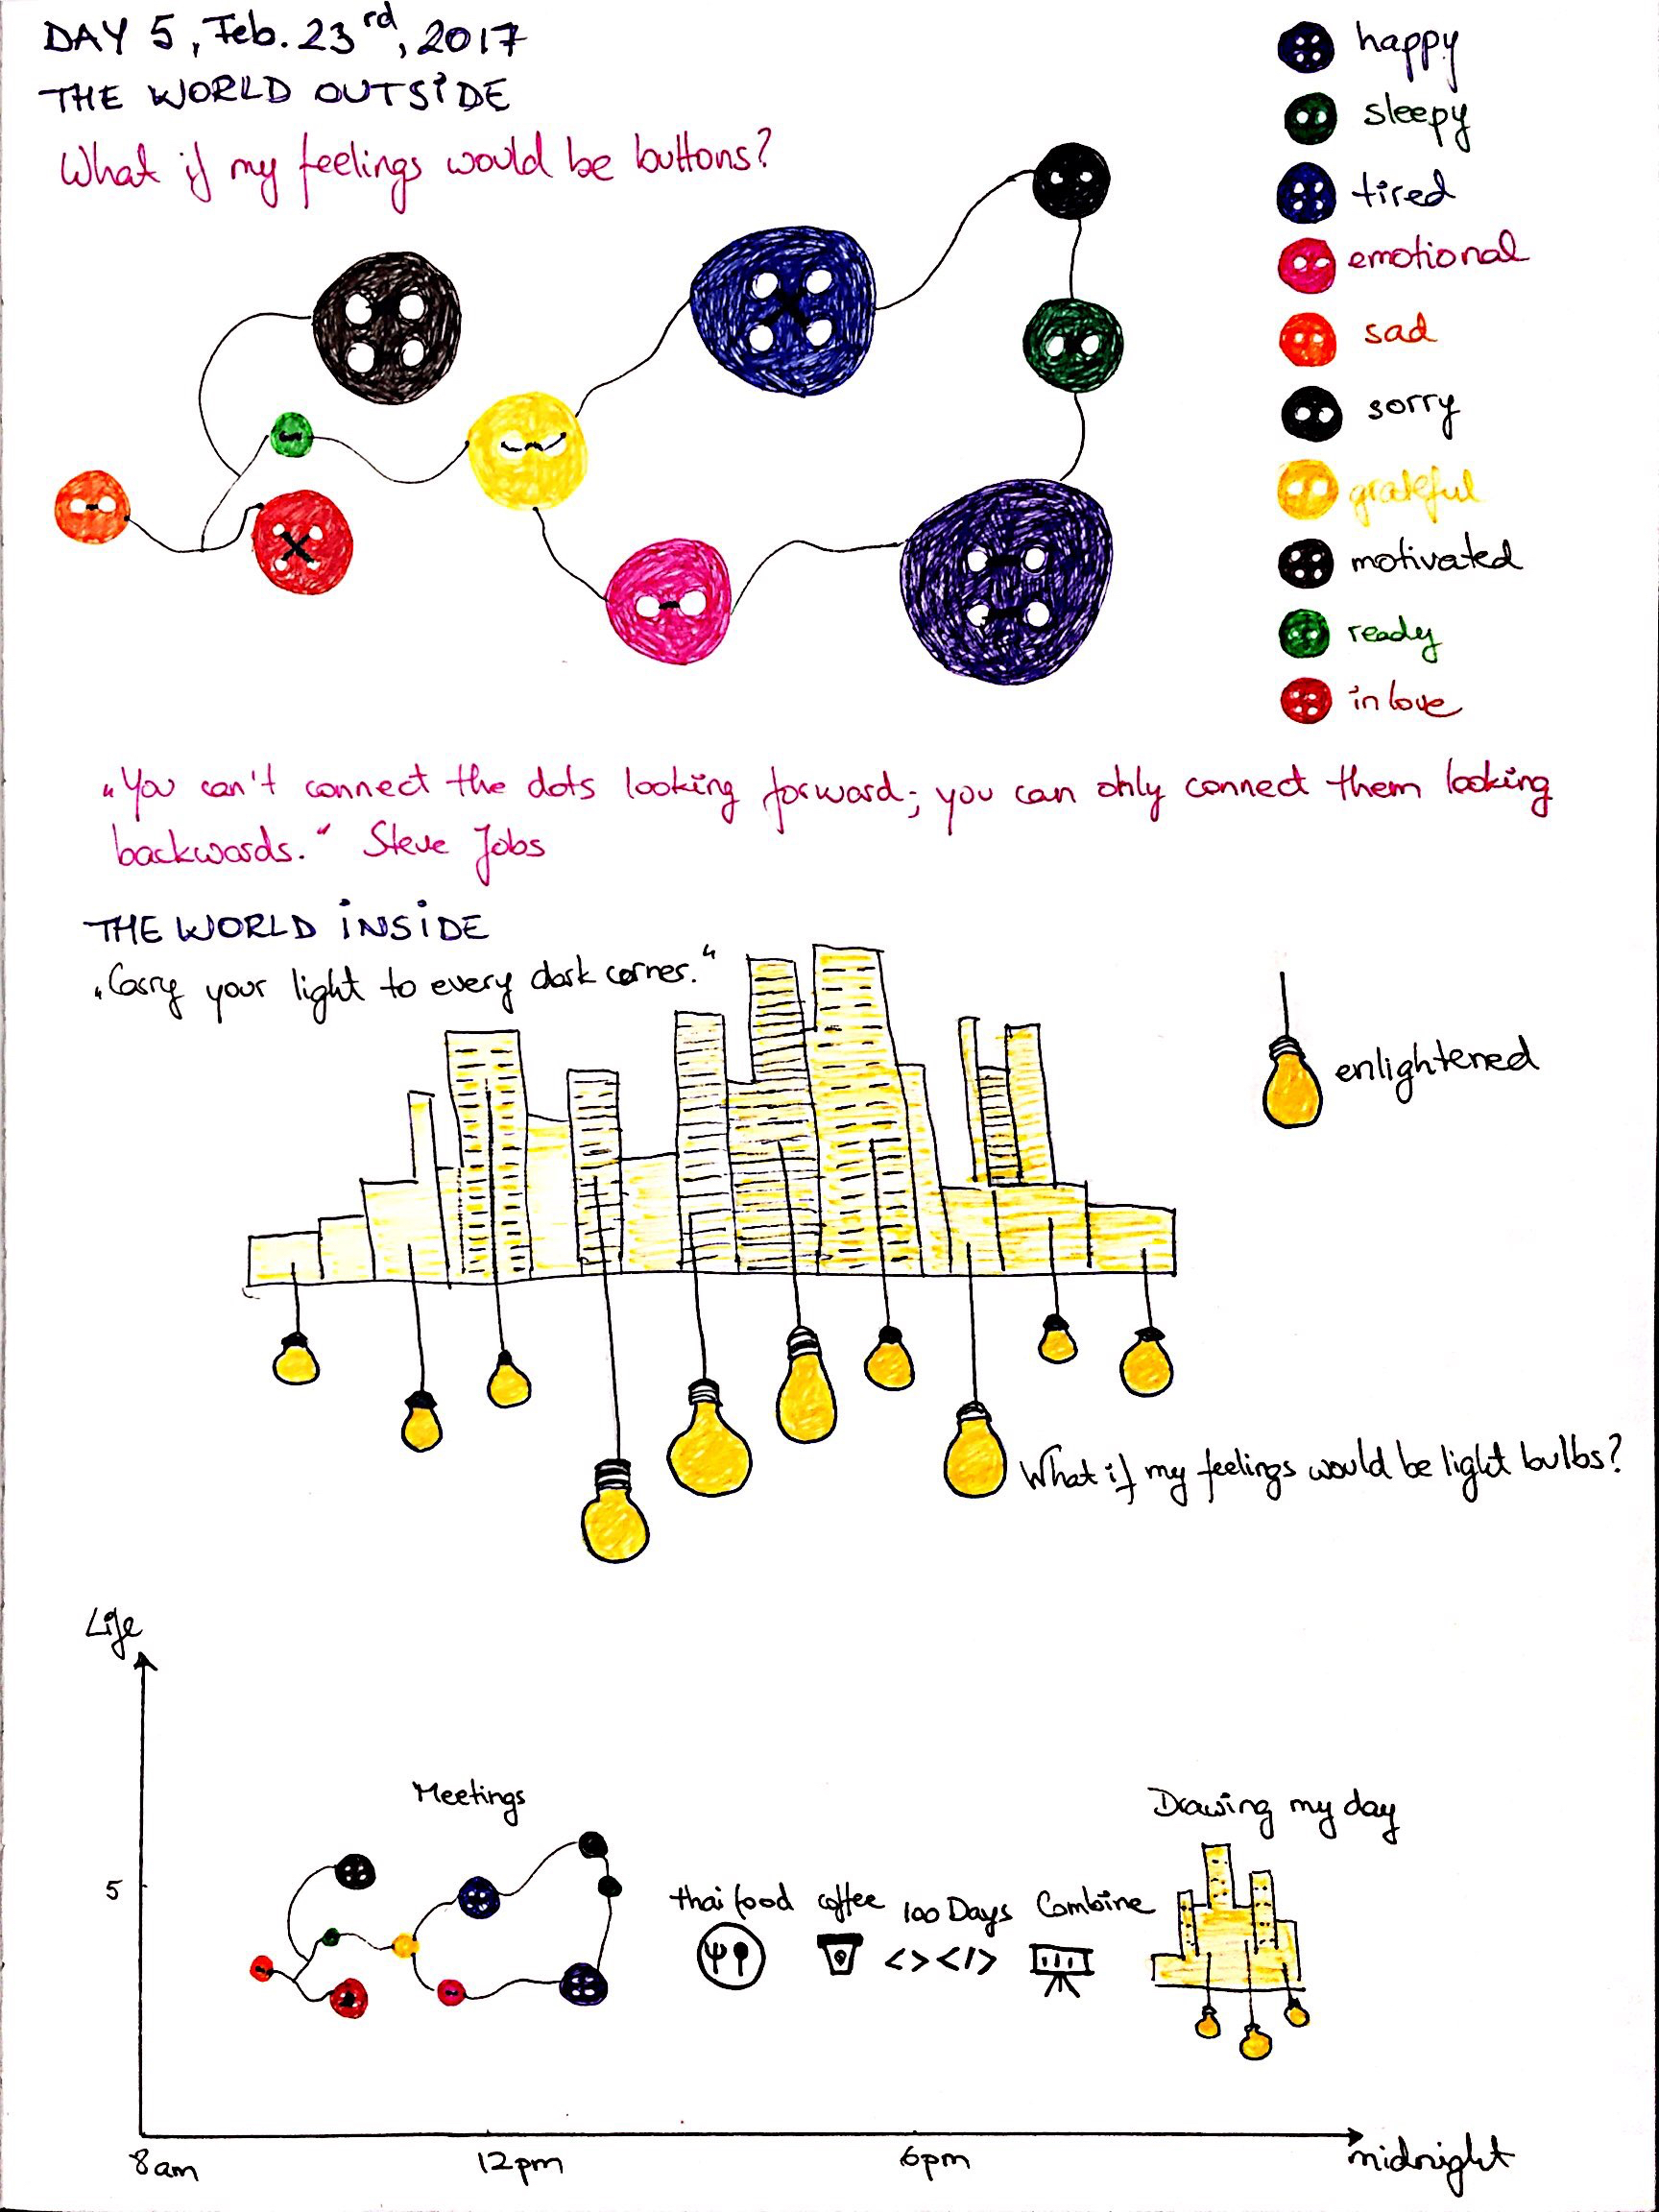 DAY 5, Feb. 23rd, 2017
THE WORLD OUTSIDE
What if my feelings would be buttons?
happy
sleepy
tired
emotional
sad
sorry
grateful
motivated
ready
in love
„You can't connect the dots looking forward; you can only connect them looking
backwards." Steve Jobs
THE WORLD INSIDE
„Carry your light to every dark corner."
enlightened
What if my feelings would be light bulbs?
Life
Meetings
Drawing my day
5
thai food coffee 100 Days Combine
<></>
8am 12pm 6pm midnight